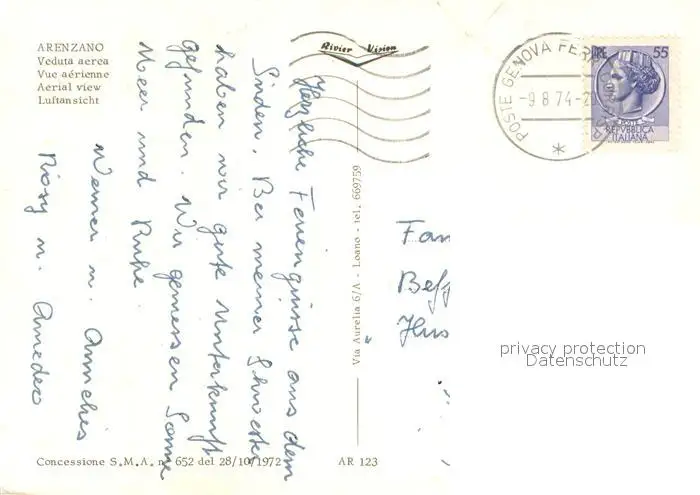 ARENZANO
Veduta aerea
Vue aérienne
Aerial view
Luftansicht
Rivier Vision
POSTE GENOVA FERR
-9 8 74-20
LIRE 55
POSTE
REPVBBLICA
ITALIANA
Herzliche Feriengrüsse aus dem
Süden. Bei meiner Schwester
haben wir gute Unterkunft
gefunden. Wir geniessen Sonne
Meer und Ruhe.
Werner u. Annelies
Rösy u. Amedeo
Via Aurelia 6/A - Loano - tel. 669759
Fam
Beff
Hus
privacy protection
Datenschutz
Concessione S.M.A. n. 652 del 28/10/1972
AR 123